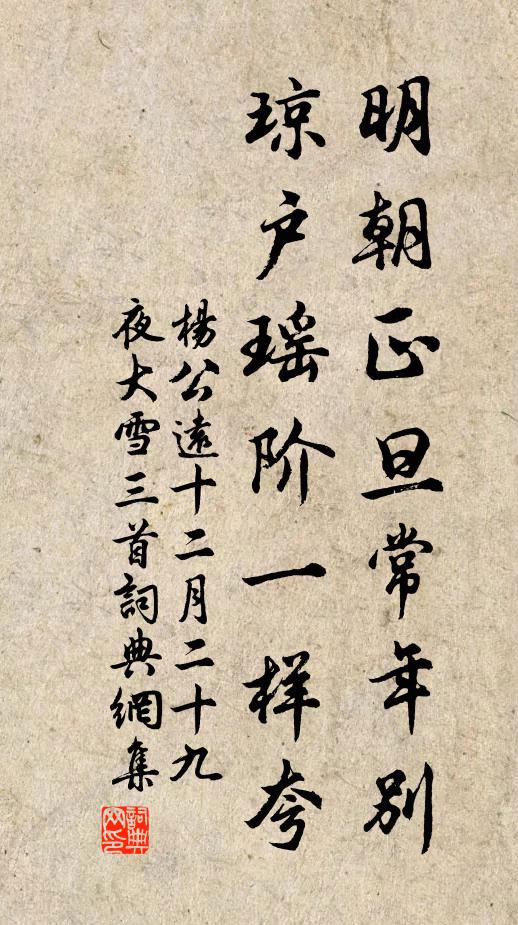 明朝正旦常年别
琼户瑶阶一样夸
楊公遠十二月二十九
夜大雪三首詞典網集
詞典网印